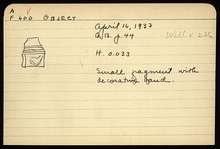 A V
P 600 OBJECT
April 16, 1933
p. 44
Well
H. 0.033
Small fragment with
decorative band.